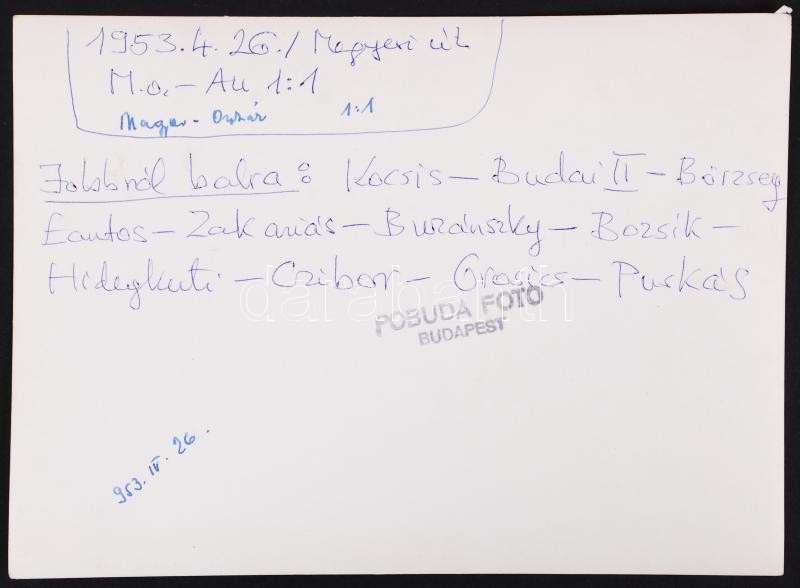 1953.4.26./ Megyeri út
M.o. – Au 1:1
Magyar - Osztrák 1:1
Jobbról balra: Kocsis – Budai II – Börzsey
Lantos – Zakariás – Buzánszky – Bozsik –
Hidegkuti – Czibor – Grosics – Puskás
darabanth
POBUDA FOTO
BUDAPEST
953. IV. 26.